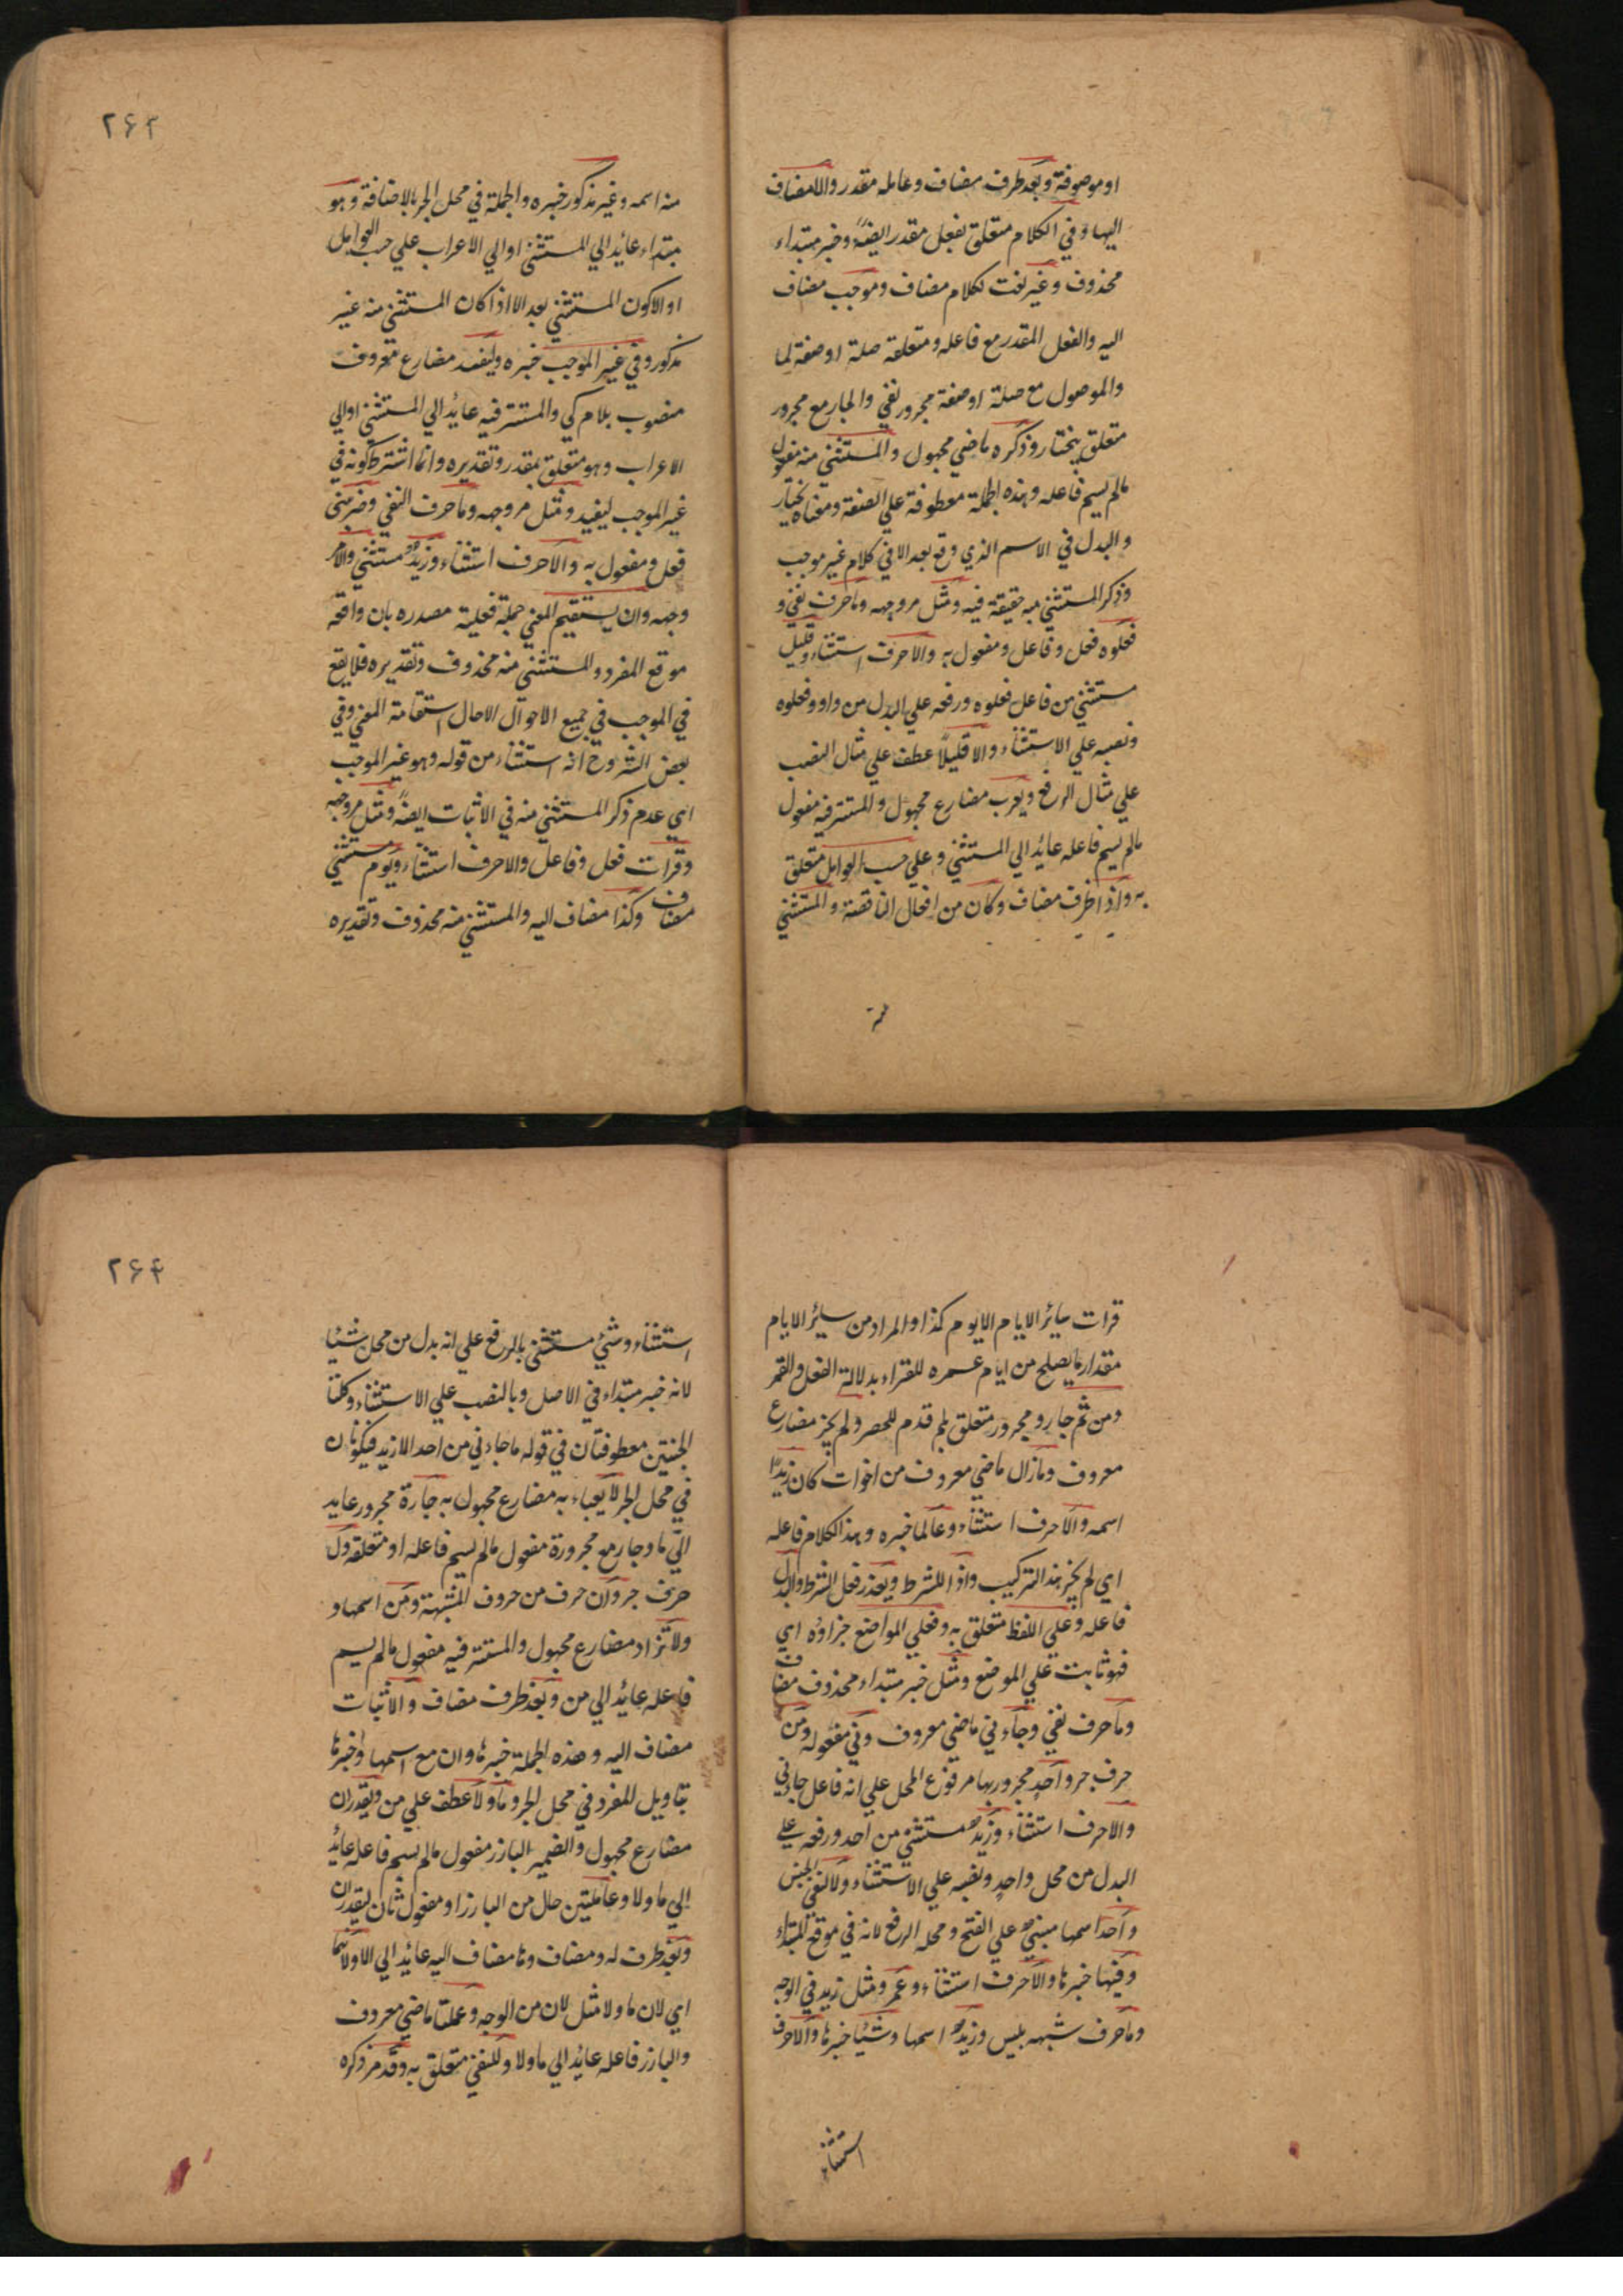 او موصوفة وبعد ظرف مضاف وعامله مقدر والا مضاف
اليها وفي الكلام متعلق بفعل مقدر ايضاً وخبر مبتداء
محذوف وغير نعت لكلام مضاف وموجب مضاف
اليه والفعل المقدر مع فاعله ومتعلقه صلة او صفة لما
والموصول مع صلة او صفة مجرور بفي والجار مع مجرور
متعلق بيختار وذكره ماضي مجهول والمستثني منه مفعول
مالم يسم فاعله وهذه الجملة معطوفة علي الصفة ومعناه يختار
والبدل في الاسم الذي وقع بعد الا في كلام غير موجب
وذكر المستثني منه حقيقة فيه ومثل مر وجهه وما حرف نفي و
فعلوه فعل وفاعل ومفعول به والا حرف استثناء وقليل
مستثني من فاعل فعلوه ورفعه علي البدل من واو وفعلوه
ونصبه علي الاستثناء والا قليلاً عطف علي مثال النصب
علي مثال الرفع ويعرب مضارع مجهول والمستتر فيه مفعول
مالم يسم فاعله عائد الي المستثني وعلي حسب العوامل متعلق
به واذا ظرف مضاف وكان من افعال الناقصة والمستثني
منه
٢٦٣
منه اسمه وغير مذكور خبره والجملة في محل الجر بالاضافة وهو
مبتداء عائد الي المستثني او الي الاعراب علي حسب العوامل
او الاكون المستثني بعد الا اذا كان المستثني منه غير
مذكور وفي غير الموجب خبره وليفيد مضارع معروف
منصوب بلام كي والمستتر فيه عائد الي المستثني او الي
الاعراب وهو متعلق بمقدر وتقديره وانما اشترط كونه في
غير الموجب ليفيد ومثل مر وجهه وما حرف النفي وضربني
فعل ومفعول به والا حرف استثناء وزيد مستثني والا مر
وجهه وان يستقيم المعني جملة فعلية مصدره بان واقعة
موقع المفرد والمستثني منه محذوف وتقديره فلا يقع
في الموجب في جميع الاحوال الا حال استقامة المعني وفي
بعض الشروح انه استثناء من قوله وهو غير الموجب
اي عدم ذكر المستثني منه في الاثبات ايضاً ومثل مر وجهه
وقرات فعل وفاعل والا حرف استثناء ويوم مستثني
مضاف وكذا مضاف اليه والمستثني منه محذوف وتقديره
قرات سائر الايام الا يوم كذا والمراد من سائر الايام
مقدار ما يصلح من ايام عمره للقراء بدلالة الفعل والقمر
ومن ثم جار ومجرور متعلق بلم قدم للحصر ولم يجز مضارع
معروف ومازال ماضي معروف من اخوات كان زيداً
اسمه والا حرف استثناء وعالما خبره وهذا الكلام فاعله
اي لم يجز هذا التركيب واذا للشرط وتعذر فعل الشرط والبدل
فاعله وعلي اللفظ متعلق به وفعلي المواضع جزاؤه اي
فهو ثابت علي الموضع ومثل خبر مبتداء محذوف مضاف
وما حرف نفي وجاءني ماضي معروف وني مفعوله ومن
حرف جر واحد مجرور بها مرفوع المحل علي انه فاعل جاءني
والا حرف استثناء وزيد مستثني من احد ورفعه علي
البدل من محل واحد ونصبه علي الاستثناء ولا لنفي الجنس
واحدا اسمها مبني علي الفتح ومحله الرفع لانه في موقع المبتداء
وفيها خبرها والا حرف استثناء وعمرو مثل زيد في الوجه
وما حرف شبهه بليس وزيد اسمها وشيئا خبرها والا حرف
استثناء
٢٦٤
استثناء وشيء مستثني بالرفع علي انه بدل من محل شيئا
لانه خبر مبتداء في الاصل وبالنصب علي الاستثناء وكلتا
الجنتين معطوفتان في قوله ما جاءني من احد الا زيد فيكونان
في محل الجر لا يعباء به مضارع مجهول به جارة مجرور عايد
الي ما وجار مع مجرورة مفعول مالم يسم فاعله او متعلقه ول
حرف جر وان حرف من حروف المشبهة ومن اسمها و
ولا تزاد مضارع مجهول والمستتر فيه مفعول مالم يسم
فاعله عايد الي من وبعد ظرف مضاف والاثبات
مضاف اليه وهذه الجملة خبرها وان مع اسمها وخبرها
بتاويل المفرد في محل الجر وما ولا عطف علي من ويقدران
مضارع مجهول والضمير البارز مفعول مالم يسم فاعله عائد
الي ما ولا وعاملتين حال من البارز او مفعول ثان ليقدران
وبعد ظرف له ومضاف وها مضاف اليه عايد الي الا ولانهما
اي لان ما ولا مثل لان من الوجه وعملتا ماضي معروف
والبارز فاعله عايد الي ما ولا وللنفي متعلق به وقد مر ذكره